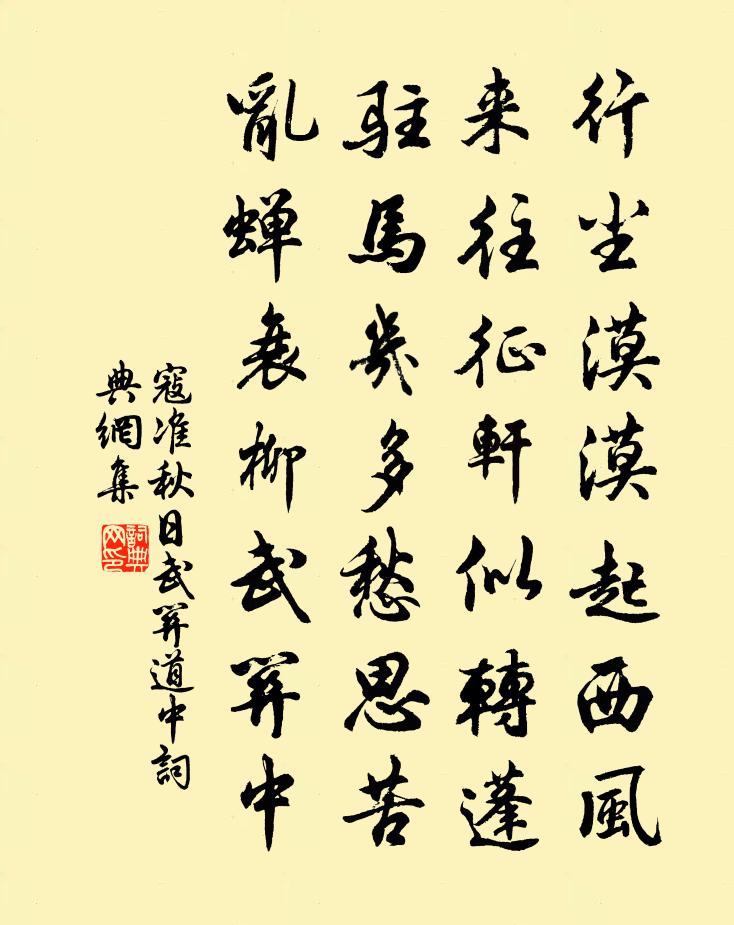 行尘漠漠起西風
来往征軒似轉蓬
駐馬幾多愁思苦
亂蝉衰柳武関中
寇准秋日武関道中詞
典網集
詞典
网印